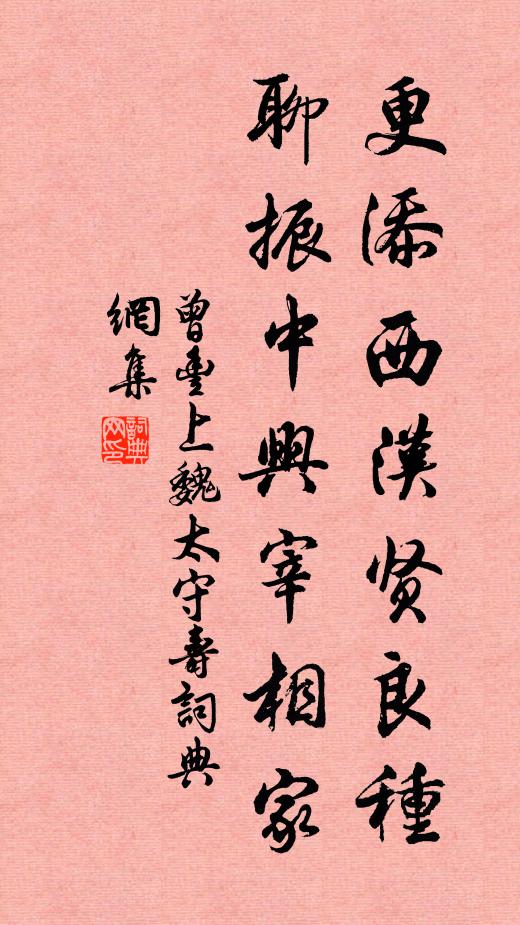 更添西漢贤良種
聊振中興宰相家
曾豊上魏太守壽詞典
網集
詞典
网印